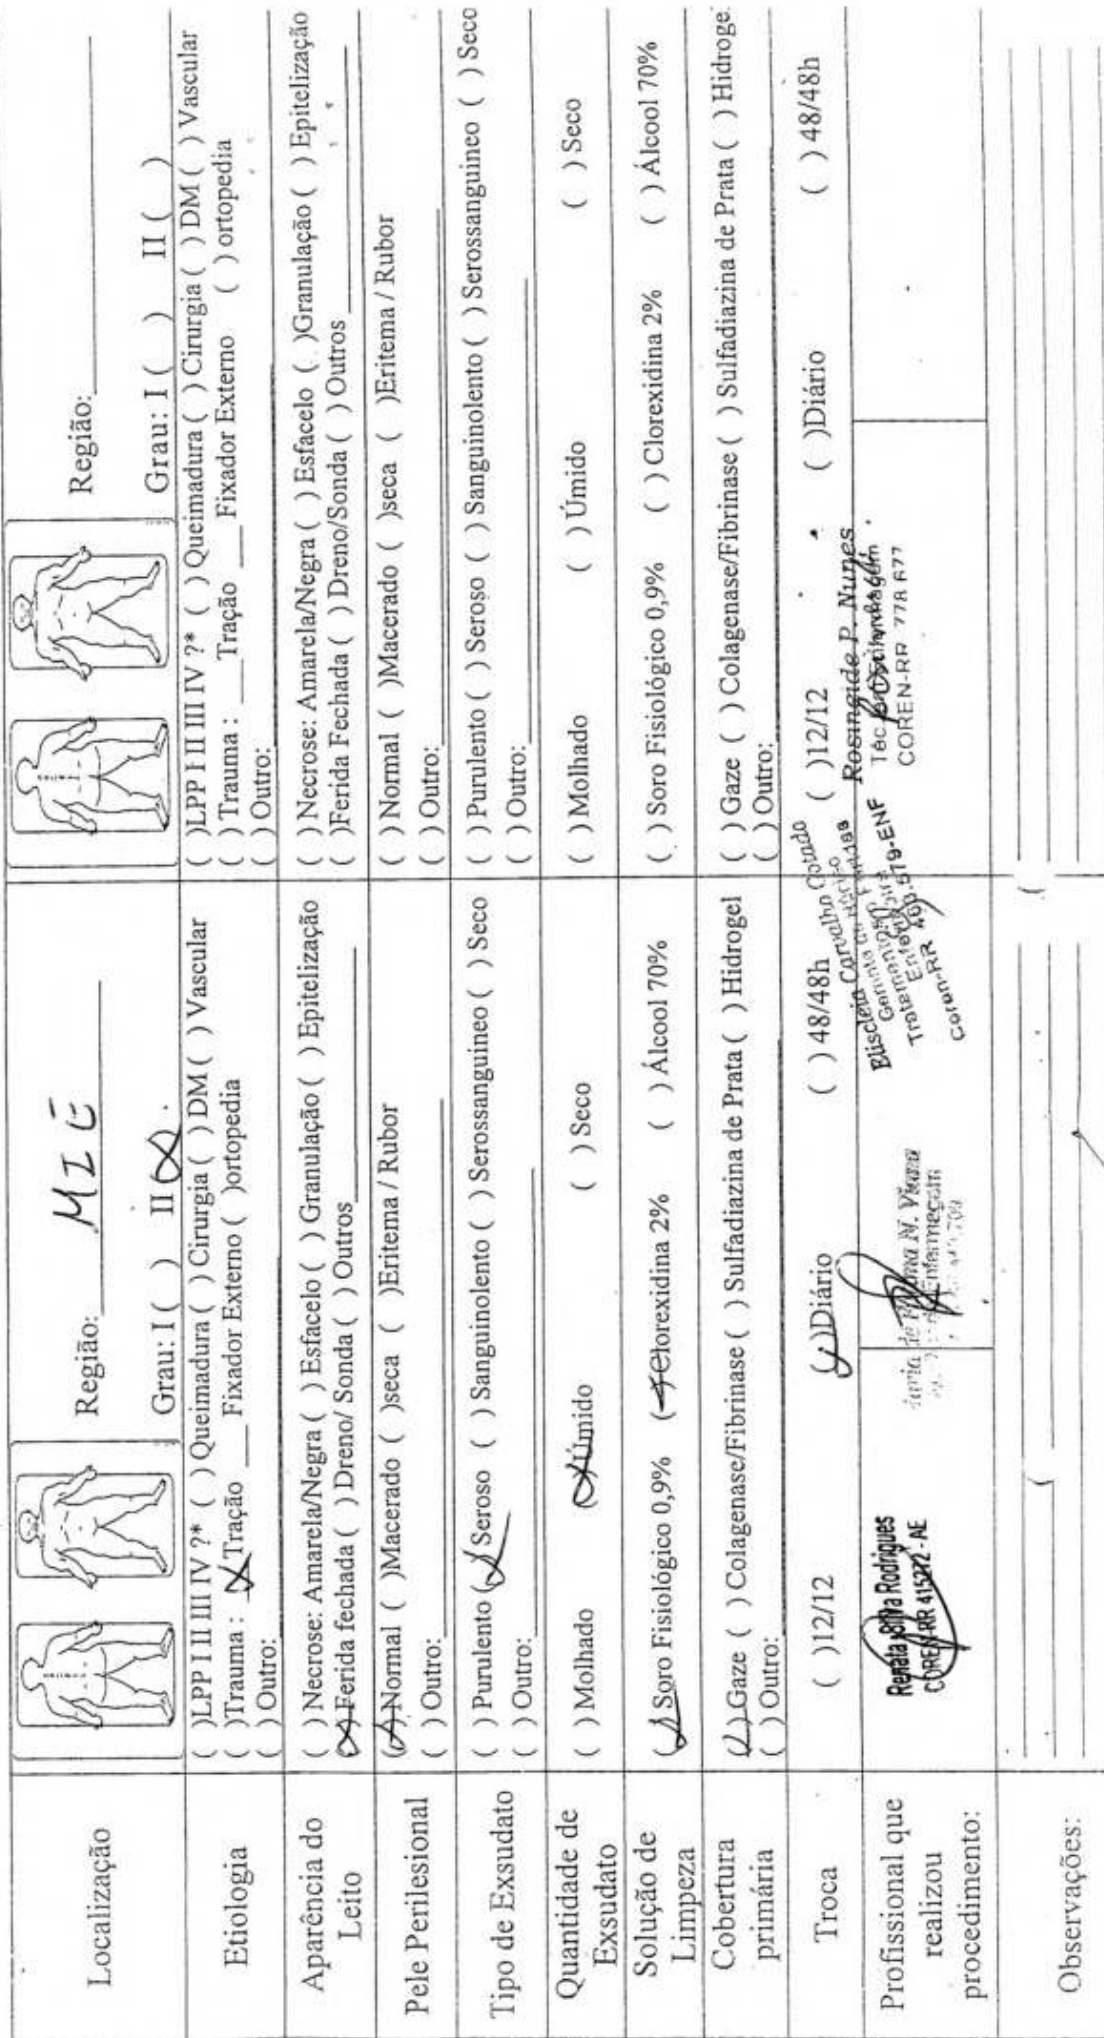 Localização
Região: MIE
Grau: I ( ) II (X)
Região:
Grau: I ( ) II ( )
Etiologia
( )LPP I II III IV ?* ( ) Queimadura ( ) Cirurgia ( ) DM ( ) Vascular
( )Trauma : X Tração ___ Fixador Externo ( )ortopedia
( ) Outro:
( )LPP I II III IV ?* ( ) Queimadura ( ) Cirurgia ( ) DM ( ) Vascular
( ) Trauma : ___ Tração ___ Fixador Externo ( ) ortopedia
( ) Outro:
Aparência do
Leito
( ) Necrose: Amarela/Negra ( ) Esfacelo ( ) Granulação ( ) Epitelização
(X) Ferida fechada ( ) Dreno/ Sonda ( ) Outros
( ) Necrose: Amarela/Negra ( ) Esfacelo ( )Granulação ( ) Epitelização
( )Ferida Fechada ( ) Dreno/Sonda ( ) Outros
Pele Perilesional
(X) Normal ( )Macerado ( )seca ( )Eritema / Rubor
( ) Outro:
( ) Normal ( )Macerado ( )seca ( )Eritema / Rubor
( ) Outro:
Tipo de Exsudato
( ) Purulento (X) Seroso ( ) Sanguinolento ( ) Serossanguineo ( ) Seco
( ) Outro:
( ) Purulento ( ) Seroso ( ) Sanguinolento ( ) Serossanguineo ( ) Seco
( ) Outro:
Quantidade de
Exsudato
( ) Molhado (X) Úmido ( ) Seco
( ) Molhado ( ) Úmido ( ) Seco
Solução de
Limpeza
(X) Soro Fisiológico 0,9% (X) Clorexidina 2% ( ) Álcool 70%
( ) Soro Fisiológico 0,9% ( ) Clorexidina 2% ( ) Álcool 70%
Cobertura
primária
(X) Gaze ( ) Colagenase/Fibrinase ( ) Sulfadiazina de Prata ( ) Hidrogel
( ) Outro:
( ) Gaze ( ) Colagenase/Fibrinase ( ) Sulfadiazina de Prata ( ) Hidroge
( ) Outro:
Troca
( )12/12 (X)Diário ( ) 48/48h
( )12/12 ( )Diário ( ) 48/48h
Profissional que
realizou
procedimento:
Renata Silva Rodrigues
COREN-RR 415272 -AE
N. Viana
Enfermagem
Carvalho
579-ENF
Coren-RR
Rosingide P. Nunes
COREN-RR 778 677
Observações: